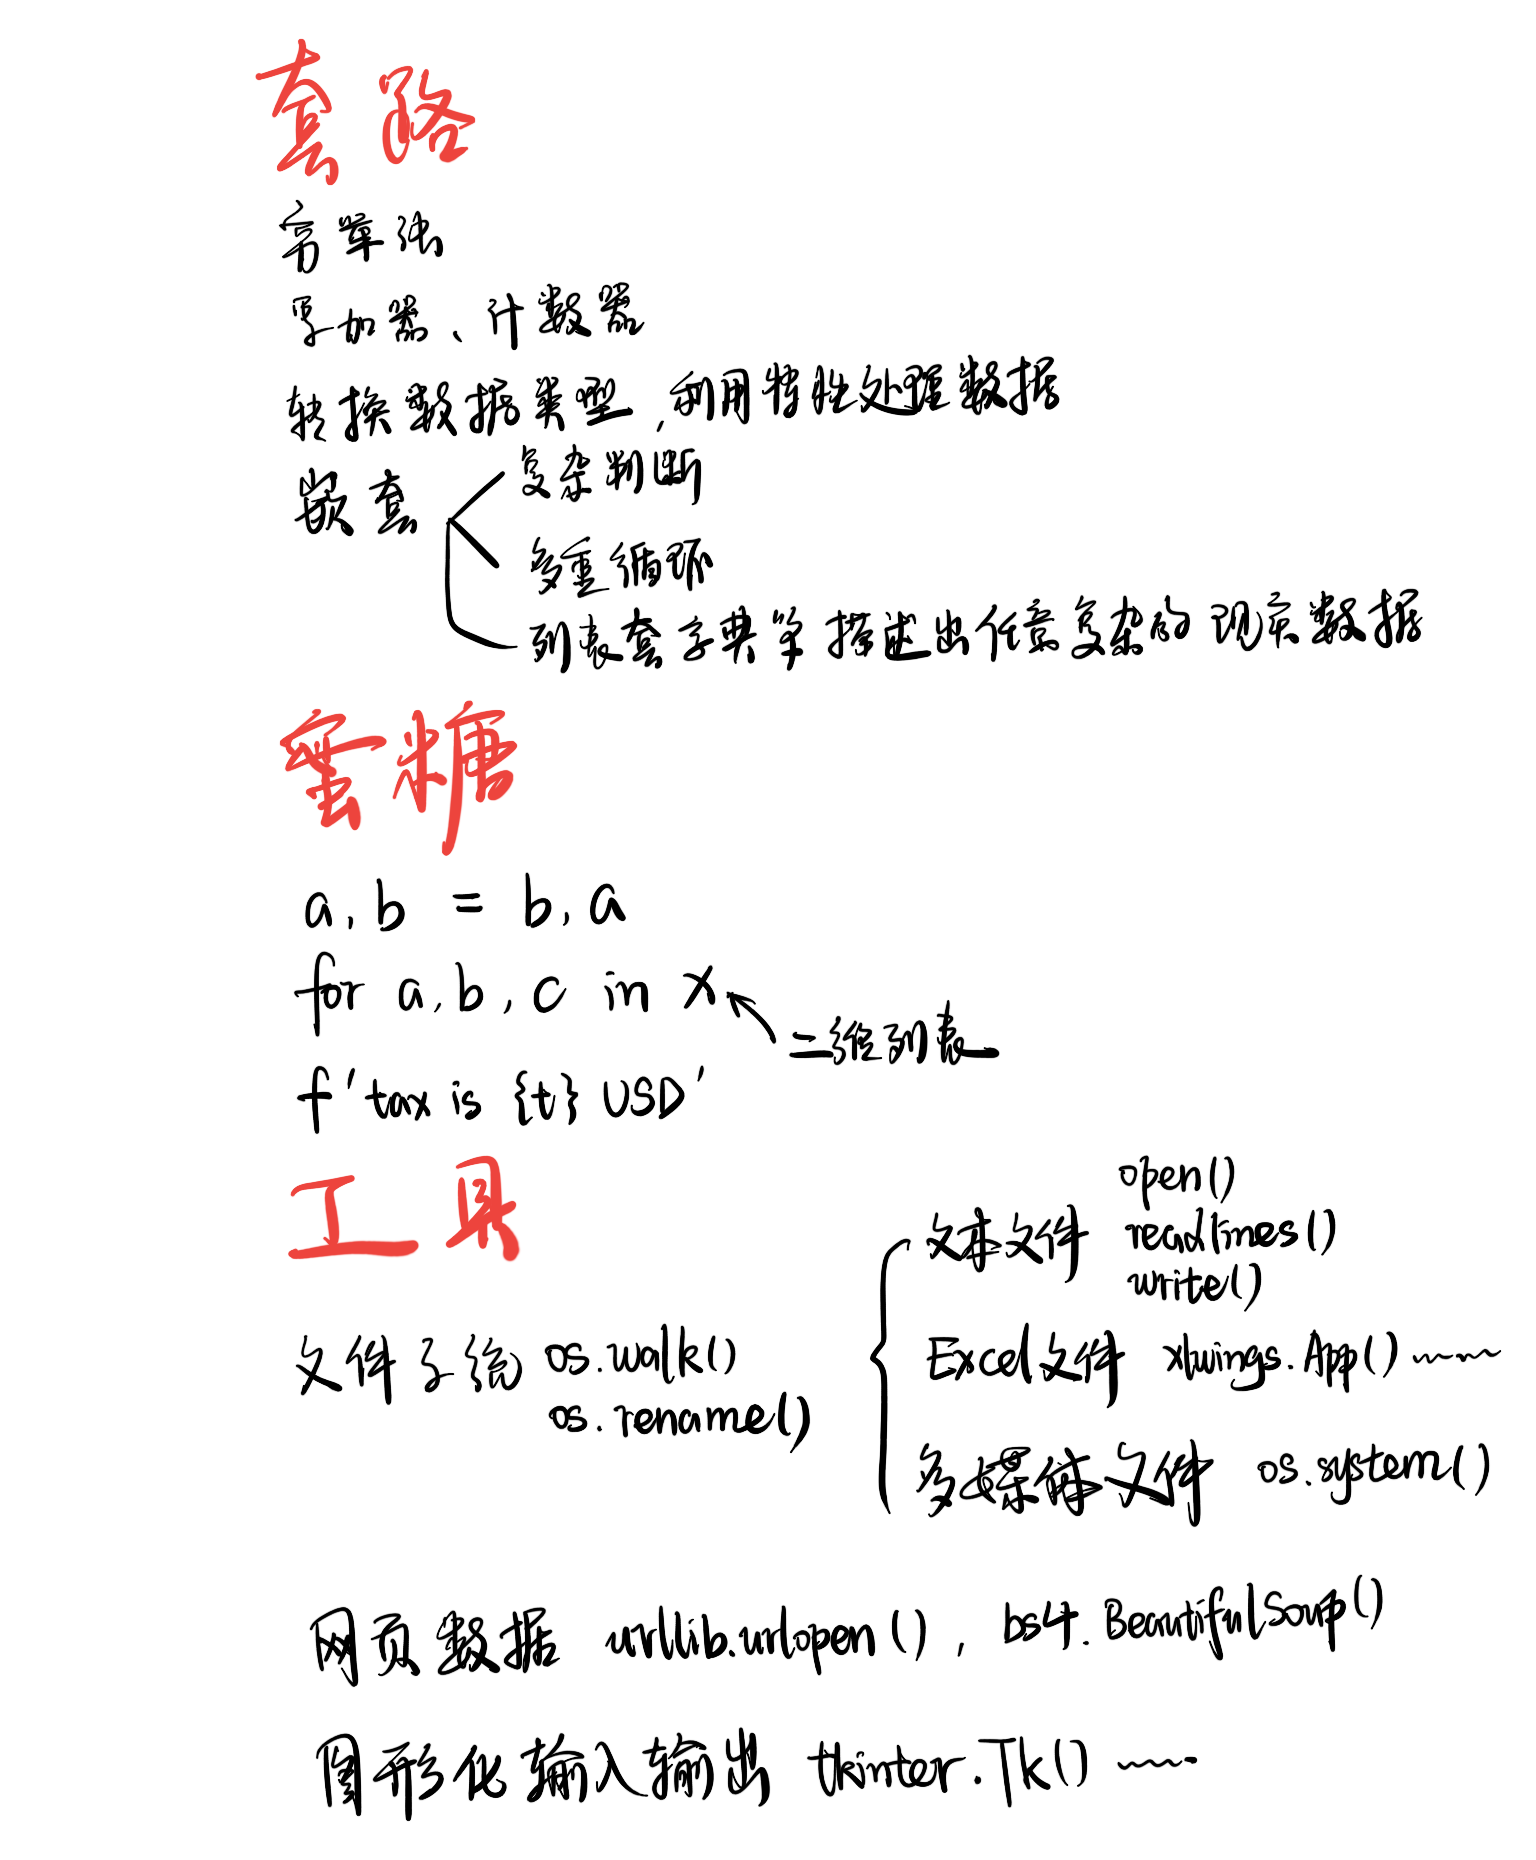 套路
穷举法
累加器、计数器
转换数据类型,利用特性处理数据
嵌套
复杂判断
多重循环
列表套字典等描述出任意复杂的现实数据
蜜糖
a, b = b, a
for a, b, c in x
二维列表
f'tax is {t} USD'
工具
文件系统 os.walk()
os.rename()
文本文件 open()
readlines()
write()
Excel文件 xlwings.App() ······
多媒体文件 os.system()
网页数据 urllib.urlopen(), bs4.BeautifulSoup()
图形化输入输出 tkinter.Tk() ······